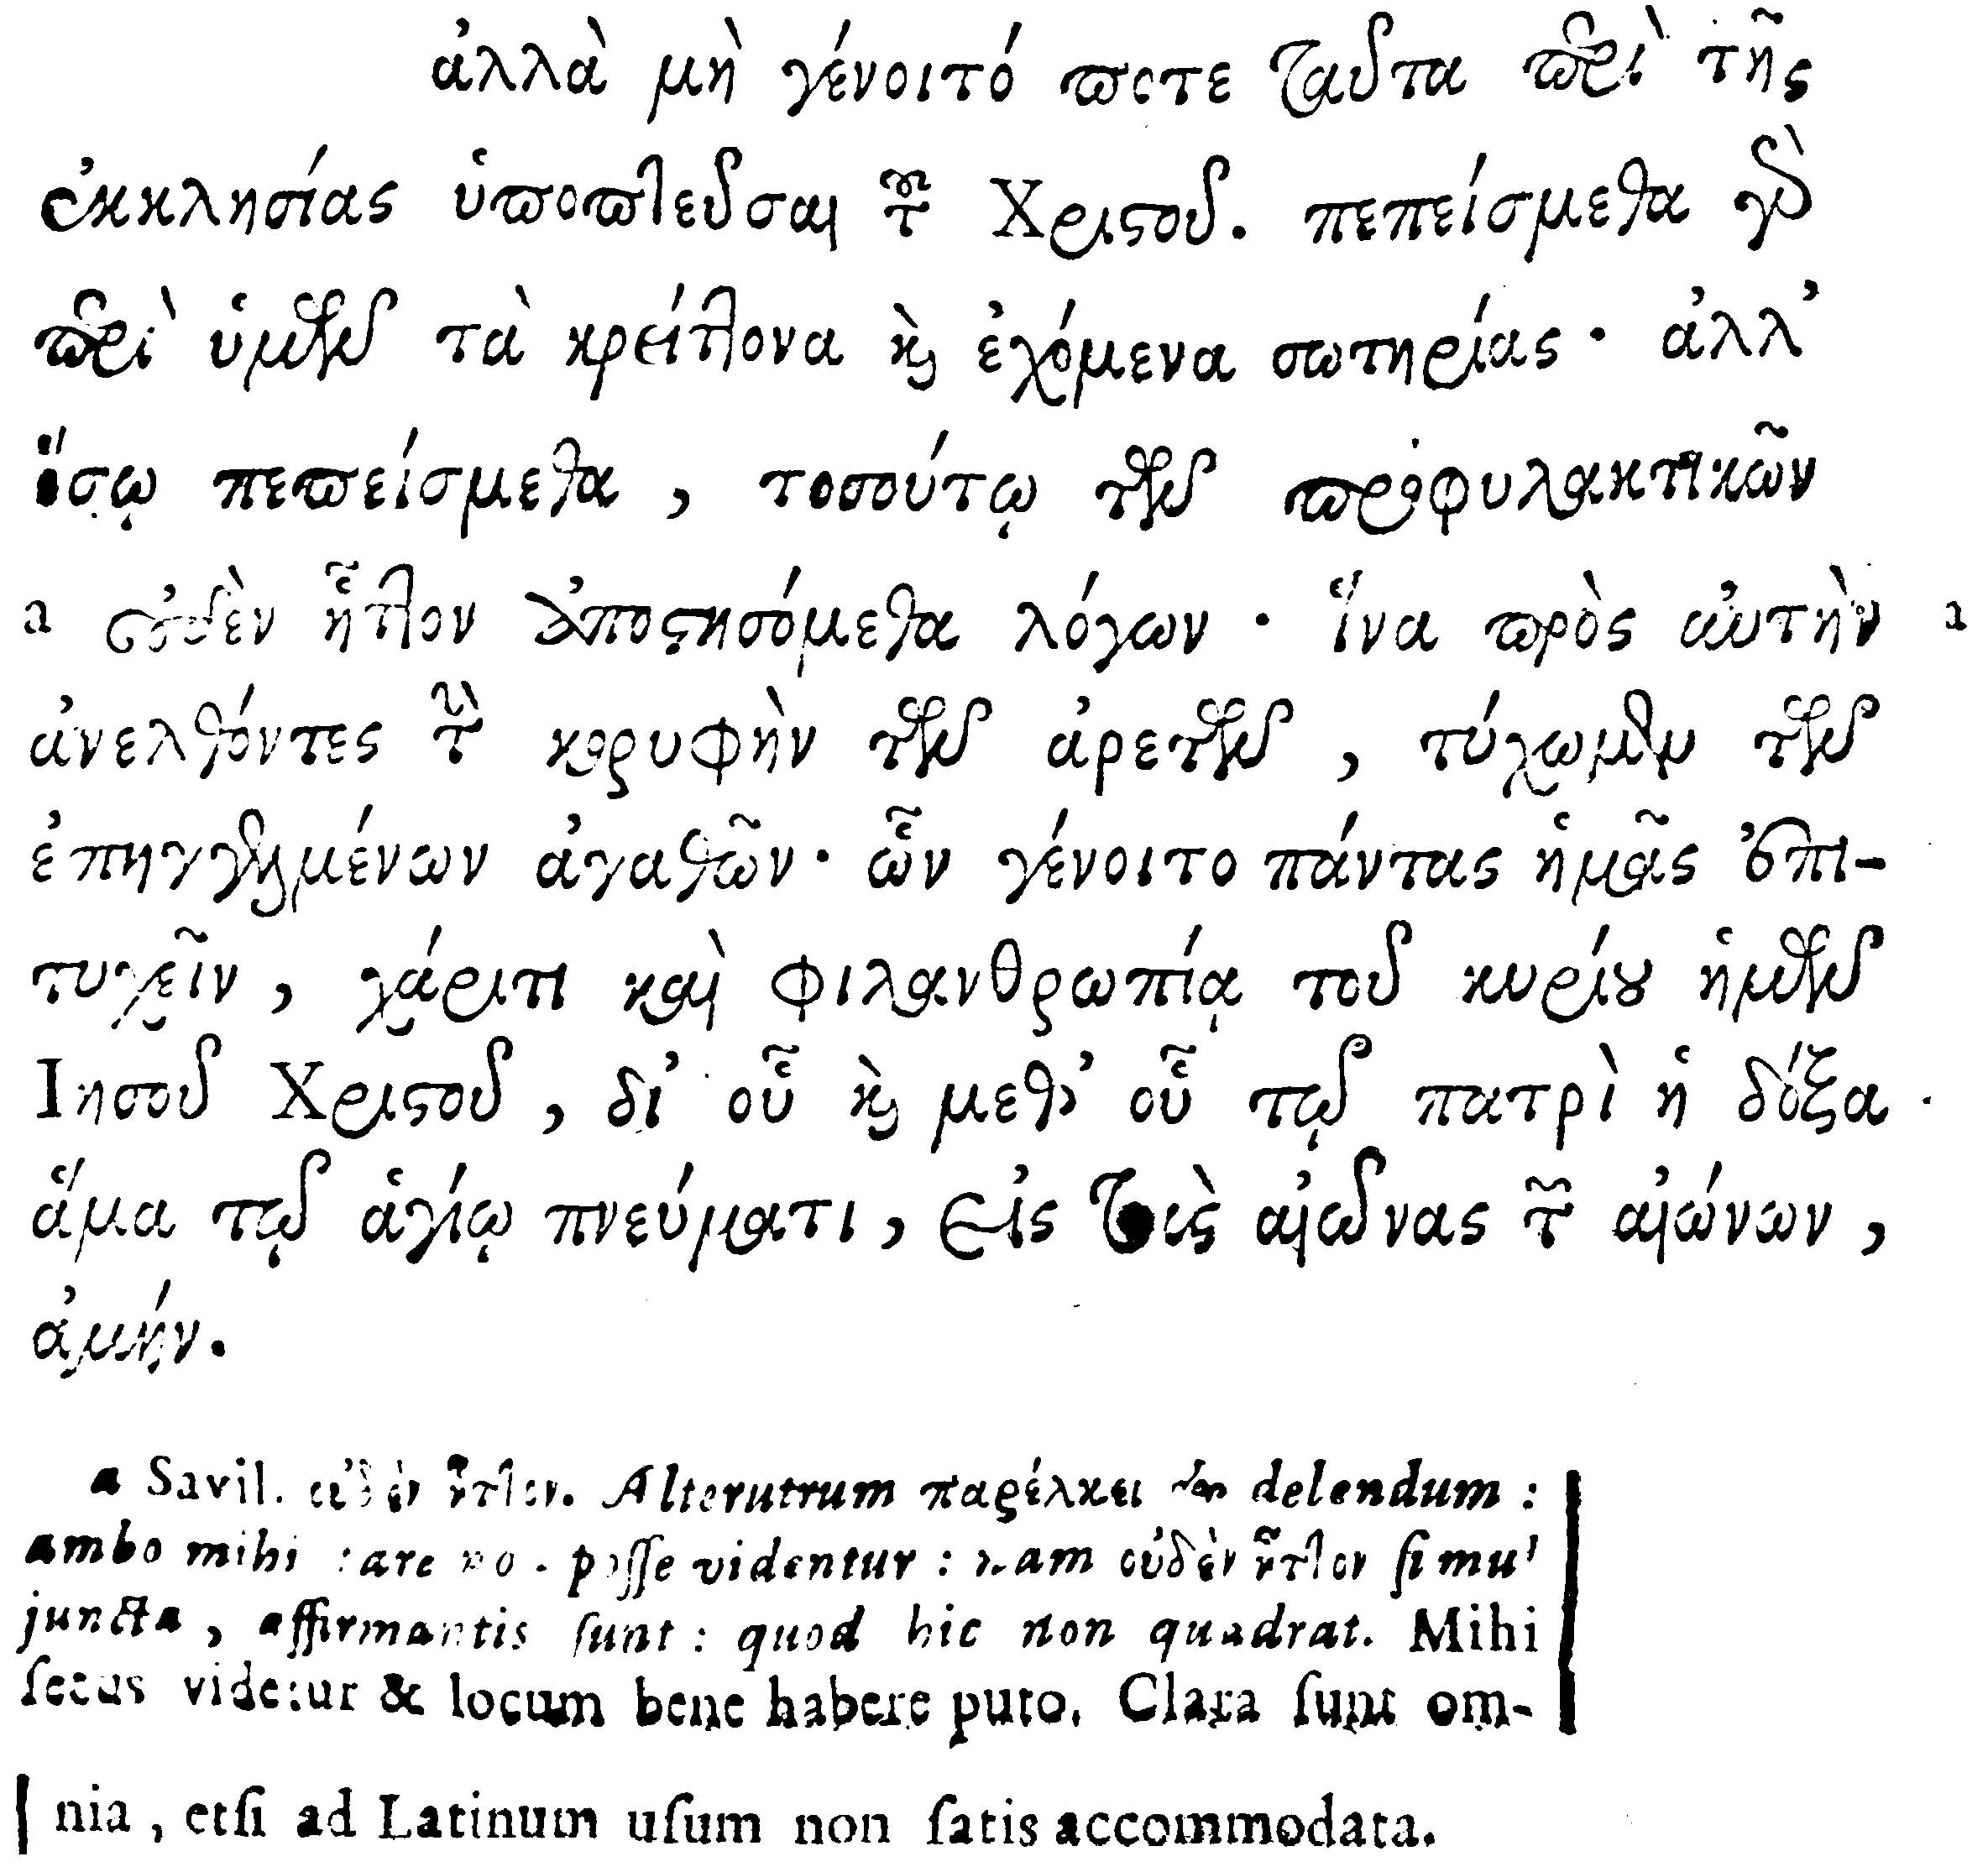 ἀλλὰ μὴ γένοιτό ποτε ταῦτα περὶ τῆς
ἐκκλησίας ὑποπτεῦσαι τοῦ Χριστοῦ. πεπείσμεθα γὰρ
περὶ ὑμῶν τὰ κρείττονα καὶ ἐχόμενα σωτηρίας· ἀλλ’
ὅσῳ πεπείσμεθα, τοσούτῳ τῶν προφυλακτικῶν
a οὐδὲν ἧττον ἀποστησόμεθα λόγων· ἵνα πρὸς αὐτὴν a
ἀνελθόντες τὴν κορυφὴν τῶν ἀρετῶν, τύχωμεν τῶν
ἐπηγγελμένων ἀγαθῶν· ὧν γένοιτο πάντας ἡμᾶς ἐπι-
τυχεῖν, χάριτι καὶ φιλανθρωπίᾳ τοῦ κυρίου ἡμῶν
Ἰησοῦ Χριστοῦ, δι’ οὗ καὶ μεθ’ οὗ τῷ πατρὶ ἡ δόξα
ἅμα τῷ ἁγίῳ πνεύματι, εἰς τοὺς αἰῶνας τῶν αἰώνων,
ἀμήν.
a Savil. οὐδὲν ἧττον. Alterutrum παρέλκει delendum:
ambo mihi stare non posse videntur: nam οὐδὲν ἧττον simul
juncta, affirmantis sunt: quod hic non quadrat. Mihi
secus videtur & locum bene habere puto. Clara sunt om-
nia, etsi ad Latinum usum non satis accommodata.